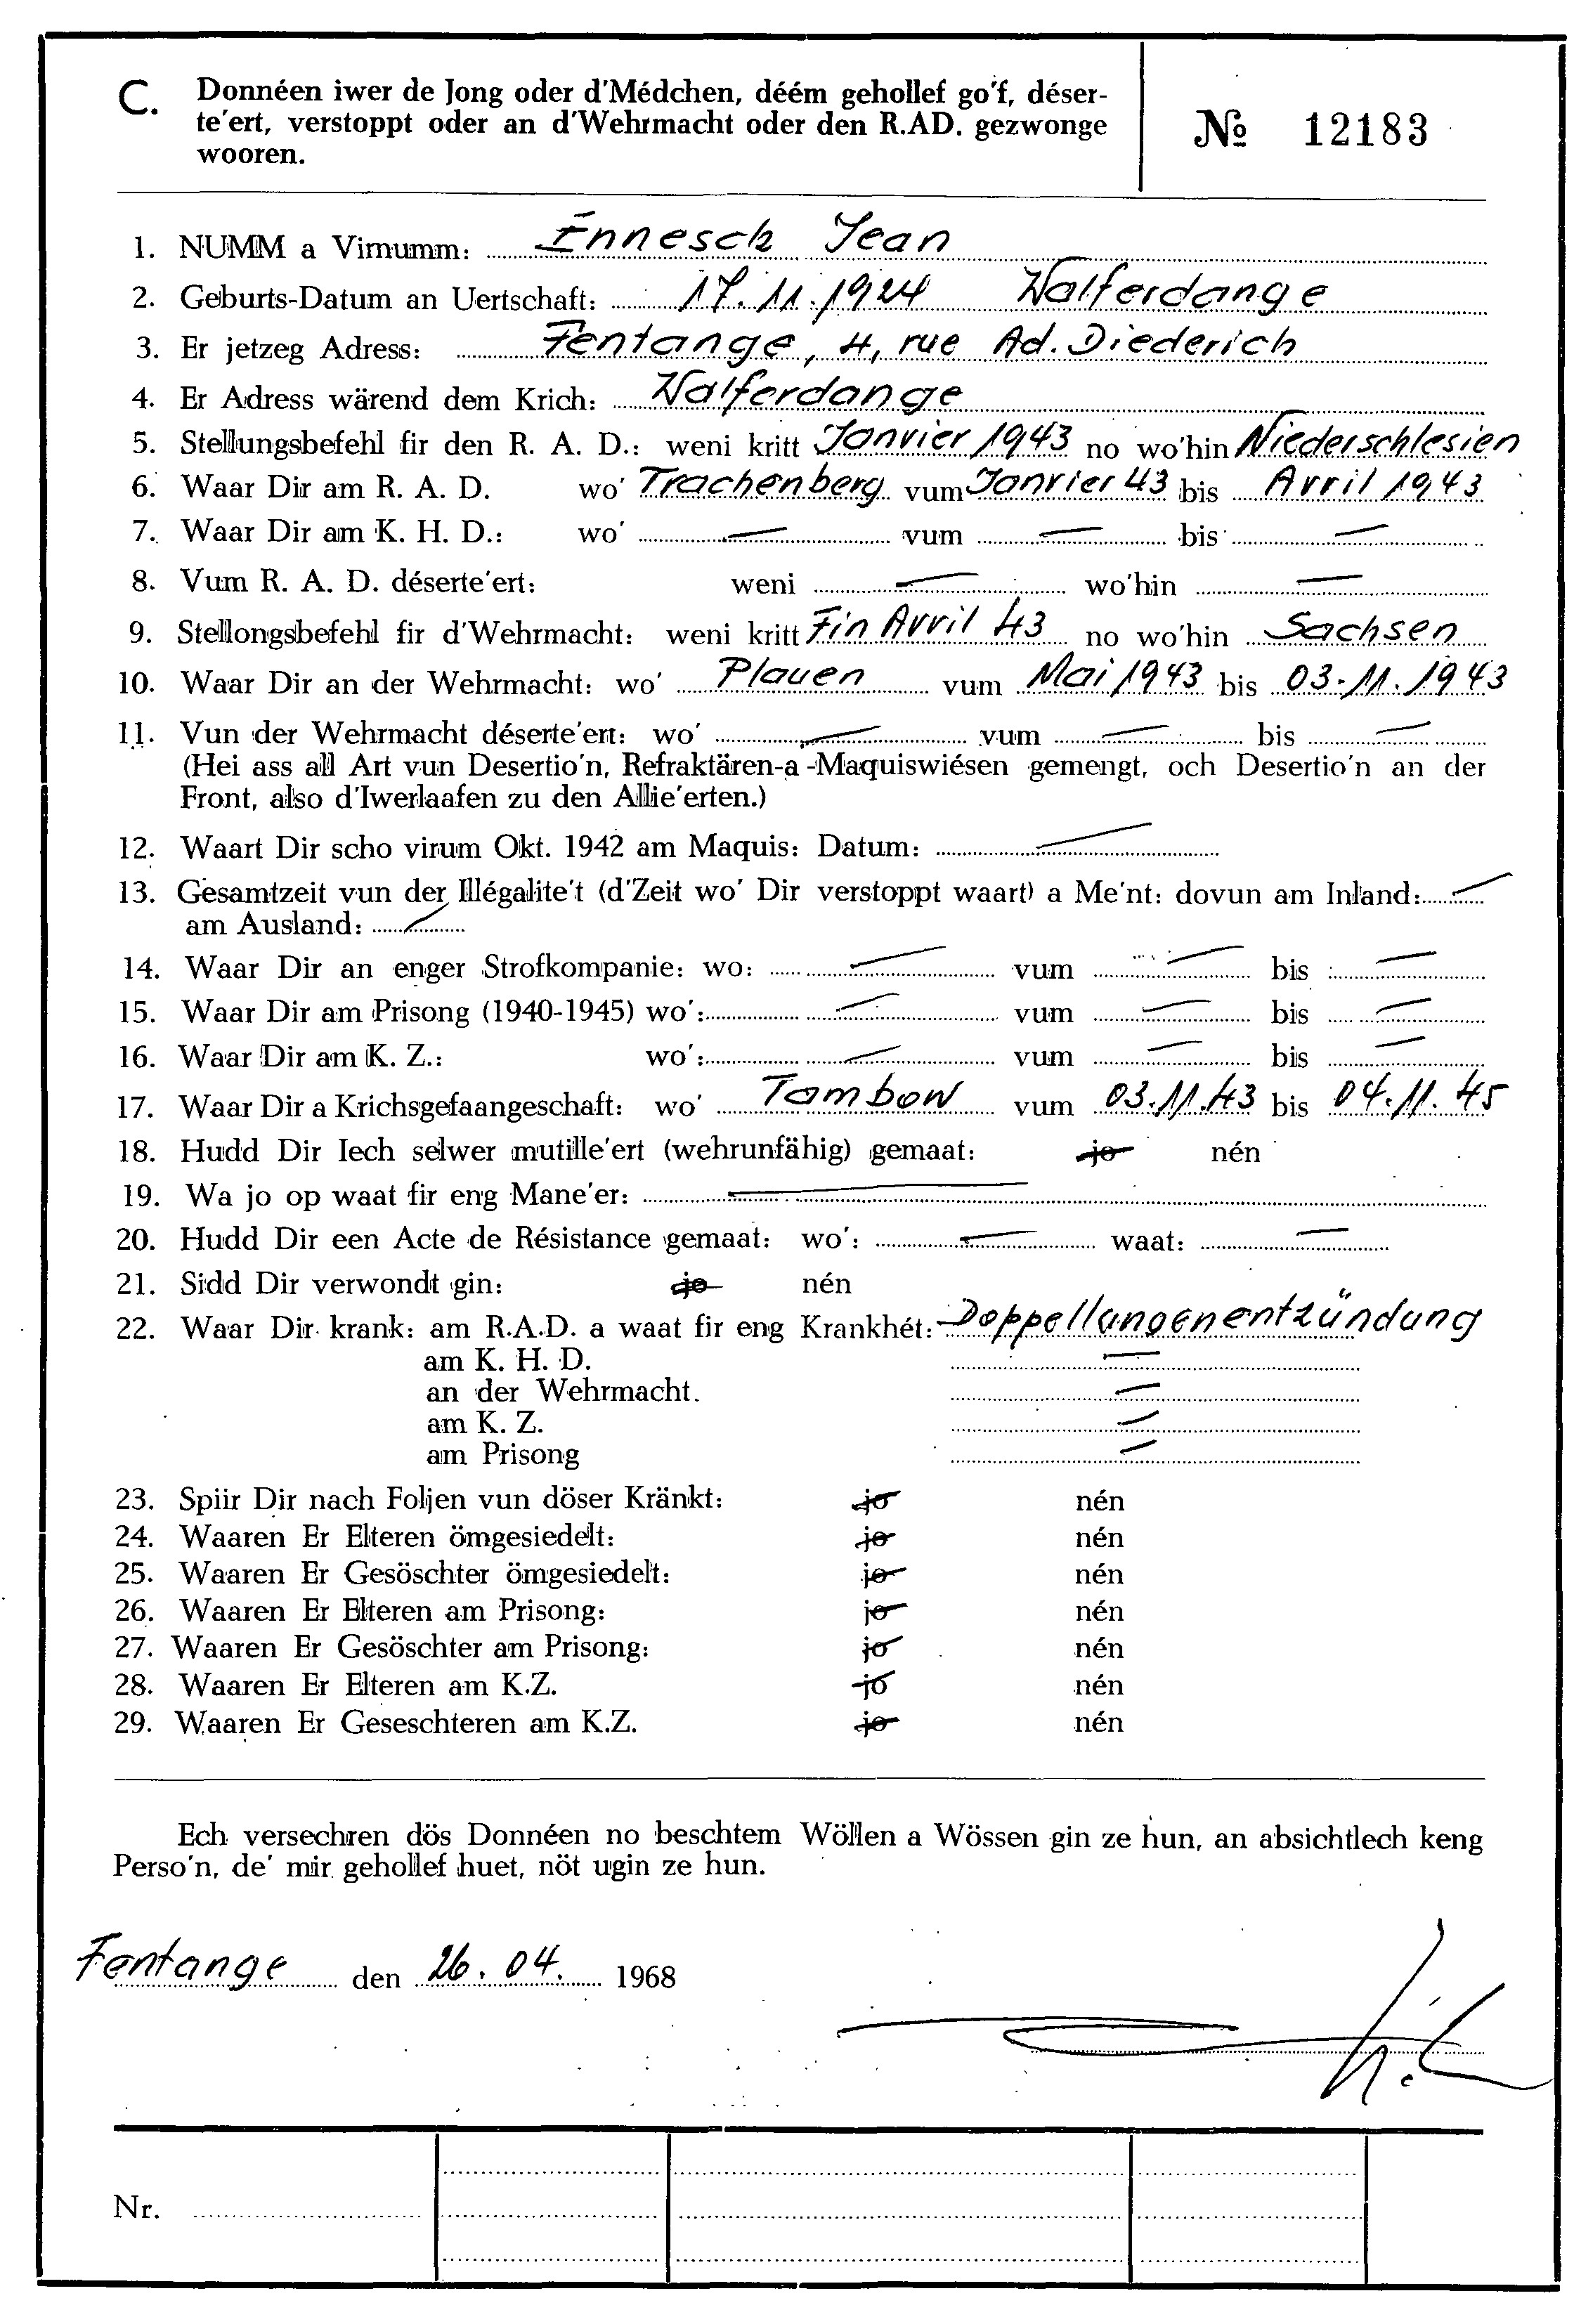 C. Donnéen iwer de Jong oder d'Médchen, déém gehollef go'f, déser-
te'ert, verstoppt oder an d'Wehrmacht oder den R.AD. gezwonge
wooren.
№ 12183
1. NUMM a Virnumm: Ennesch Jean
2. Geburts-Datum an Uertschaft: 17.11.1924 Walferdange
3. Er jetzeg Adress: Fentange, 4, rue Ad. Diederich
4. Er Adress wärend dem Krich: Walferdange
5. Stellungsbefehl fir den R. A. D.: weni kritt Janvier 1943 no wo'hin Niederschlesien
6. Waar Dir am R. A. D. wo' Trachenberg vum Janvier 43 bis Avril 1943
7. Waar Dir am K. H. D.: wo' — vum — bis —
8. Vum R. A. D. déserte'ert: weni — wo'hin —
9. Stellongsbefehl fir d'Wehrmacht: weni kritt Fin Avril 43 no wo'hin Sachsen
10. Waar Dir an der Wehrmacht: wo' Plauen vum Mai 1943 bis 03.11.1943
11. Vun der Wehrmacht déserte'ert: wo' — vum — bis —
(Hei ass all Art vun Desertio'n, Refraktären-a-Maquiswiésen gemengt, och Desertio'n an der
Front, also d'Iwerlaafen zu den Allie'erten.)
12. Waart Dir scho virum Okt. 1942 am Maquis: Datum: —
13. Gesamtzeit vun der Illégalite't (d'Zeit wo' Dir verstoppt waart) a Me'nt: dovun am Inland: —
am Ausland: —
14. Waar Dir an enger Strofkompanie: wo: — vum — bis —
15. Waar Dir am Prisong (1940-1945) wo': — vum — bis —
16. Waar Dir am K. Z.: wo': — vum — bis —
17. Waar Dir a Krichsgefaangeschaft: wo' Tambow vum 03.11.43 bis 04.11.45
18. Hudd Dir Iech selwer mutille'ert (wehrunfähig) gemaat: jo nén
19. Wa jo op waat fir eng Mane'er: —
20. Hudd Dir een Acte de Résistance gemaat: wo': — waat: —
21. Sidd Dir verwondt gin: jo nén
22. Waar Dir krank: am R.A.D. a waat fir eng Krankhét: Doppellungenentzündung
am K. H. D. —
an der Wehrmacht. —
am K. Z. —
am Prisong —
23. Spiir Dir nach Foljen vun döser Kränkt: jo nén
24. Waaren Er Elteren ömgesiedelt: jo nén
25. Waaren Er Gesöschter ömgesiedelt: jo nén
26. Waaren Er Elteren am Prisong: jo nén
27. Waaren Er Gesöschter am Prisong: jo nén
28. Waaren Er Elteren am K.Z. jo nén
29. Waaren Er Geseschteren am K.Z. jo nén
Ech versechren dös Donnéen no beschtem Wöllen a Wössen gin ze hun, an absichtlech keng
Perso'n, de' mir gehollef huet, nöt ugin ze hun.
Fentange den 26.04. 1968
Nr.